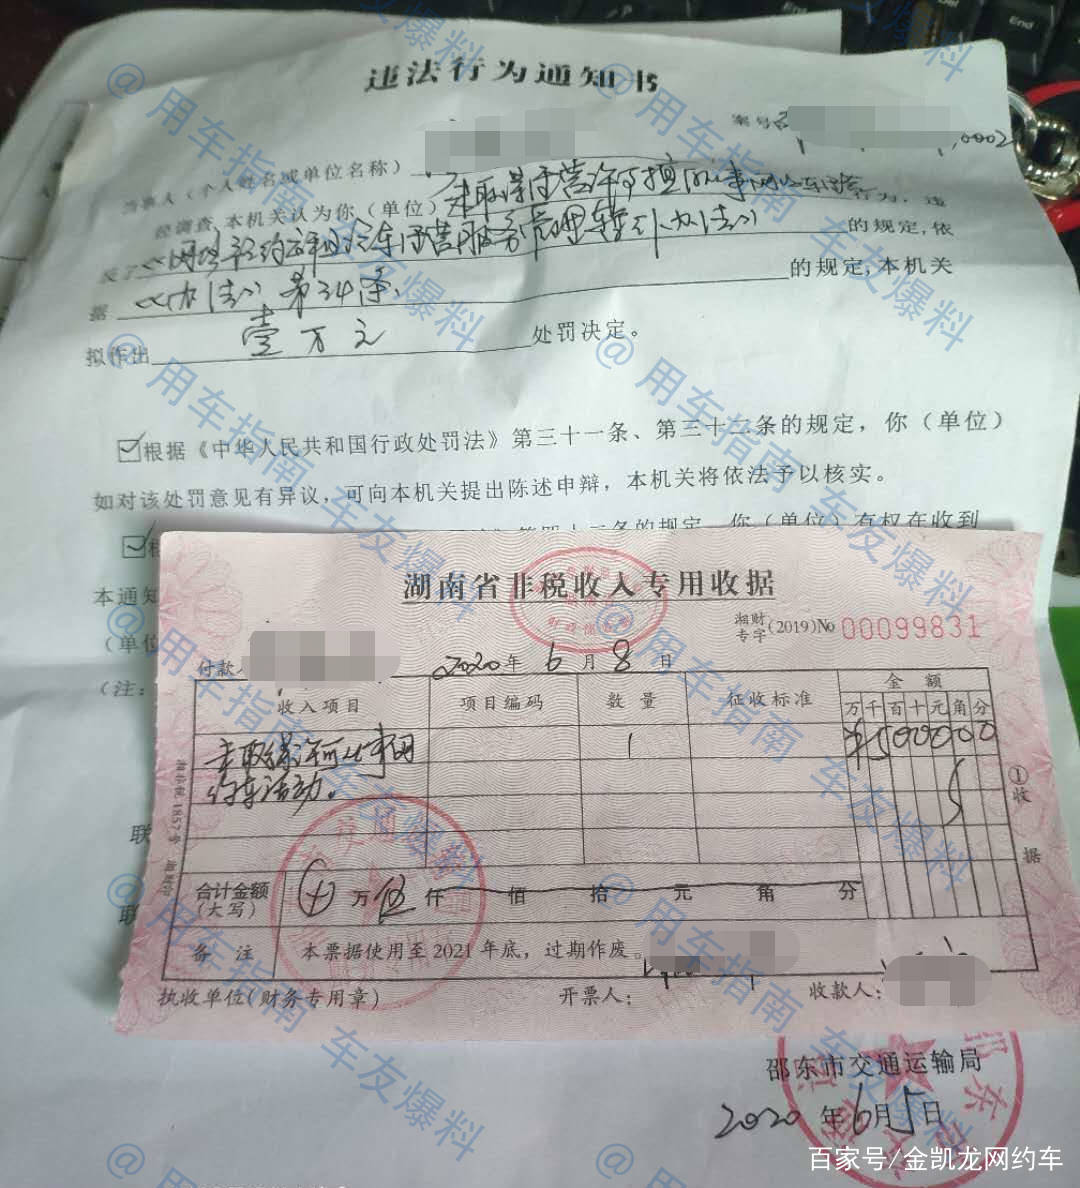 违法行为通知书
案号
,0002
当事人（个人姓名或单位名称）
经调查,本机关认为你（单位）未取得经营许可擅自从事网约车经营行为，违
反了《网络预约出租汽车经营服务管理暂行办法》的规定,依
据《办法》第34条的规定,本机关
拟作出壹万元处罚决定。
根据《中华人民共和国行政处罚法》第三十一条、第三十二条的规定，你（单位）
如对该处罚意见有异议，可向本机关提出陈述申辩，本机关将依法予以核实。
第四十二条的规定，你（单位）有权在收到
本通知
（单位
（注：
联
联
湖南省非税收入专用收据
湘财
专字(2019)№ 00099831
付款人
2020年6月8日
收入项目 项目编码 数量 征收标准 金额
万千百十元角分
未取得许可从事网
约车活动。
1
¥500000
合计金额
(大写)
万伍仟佰拾元角分
备注 本票据使用至2021年底，过期作废。
①收据
执收单位(财务专用章) 开票人： 收款人：
邵东市交通运输局
2020年6月5日
@用车指南 车友爆料
百家号/金凯龙网约车
End